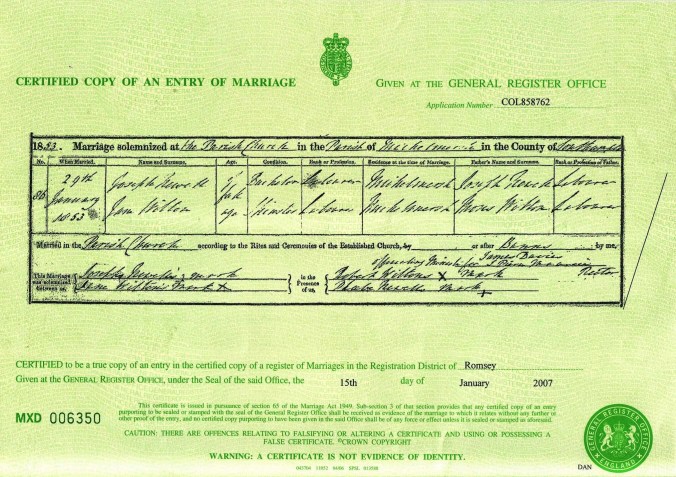 CERTIFIED COPY OF AN ENTRY OF MARRIAGE
GIVEN AT THE GENERAL REGISTER OFFICE
Application Number COL858762
1853. Marriage solemnized at the Parish Church in the Parish of Michelmersh in the County of
No. When Married. Name and Surname. Age. Condition. Rank or Profession. Residence at the time of Marriage. Father's Name and Surname. Rank or Profession of Father.
86 29th January 1853
Joseph Newell of full age Bachelor Labourer Michelmersh Joseph Newell Labourer
Jane Wilton Spinster Michelmersh Moses Wilton Labourer
Married in the Parish Church according to the Rites and Ceremonies of the Established Church, by or after Banns by me,
James Davies
Rector
This Marriage was solemnized between us,
Joseph Newell's mark
Jane Wilton's mark x
in the Presence of us,
Robert Wilton's x mark
Phoebe Newell's mark x
CERTIFIED to be a true copy of an entry in the certified copy of a register of Marriages in the Registration District of Romsey
Given at the GENERAL REGISTER OFFICE, under the Seal of the said Office, the 15th day of January 2007
MXD 006350
This certificate is issued in pursuance of section 65 of the Marriage Act 1949. Sub-section 3 of that section provides that any certified copy of an entry
purporting to be sealed or stamped with the seal of the General Register Office shall be received as evidence of the marriage to which it relates without any further or
other proof of the entry, and no certified copy purporting to have been given in the said Office shall be of any force or effect unless it is sealed or stamped as aforesaid.
CAUTION: THERE ARE OFFENCES RELATING TO FALSIFYING OR ALTERING A CERTIFICATE AND USING OR POSSESSING A
FALSE CERTIFICATE. ©CROWN COPYRIGHT
WARNING: A CERTIFICATE IS NOT EVIDENCE OF IDENTITY.
GENERAL REGISTER OFFICE
ENGLAND
DAN